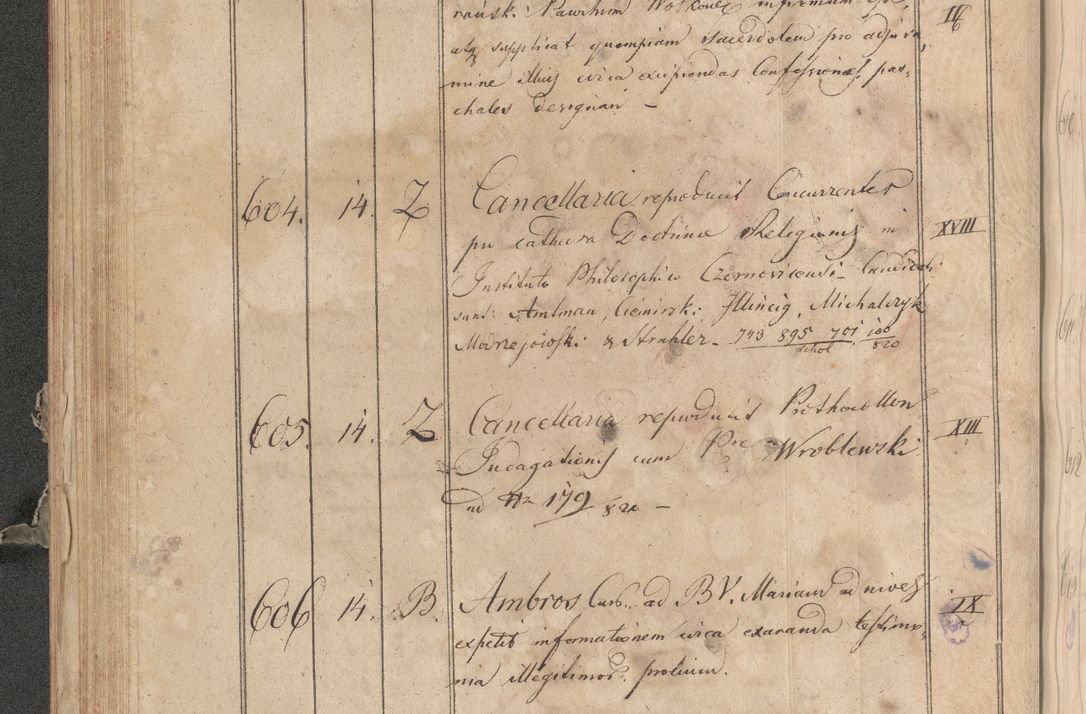 rausk: Pawlinum infirmum
atq supplicat quempiam sacerdotem pro adjuva,
mine illius circa excipiendas Confessiones pas,
chales designari –
IV
604. 14. Z Cancellaria reproducit Concurrentes
pro cathedra Doctrinae Religionis in
Instituto Philosophico Czernovicensi – Candidati
sunt: Amlman, Cieminski: Illincig, Michalczyk
& Strahler – 743 895 701 100
schol 820
XVIII
605. 14. Z Cancellaria reproducit Prothocollon
Indagationis cum Pre Wroblewski
ad Nr 179 820 –
XIII
606 14. B. Ambros Cur. ad B V. Mariam ad nives
expetit informationem circa exaranda testimo,
nia illegitimor. prolium.
IX
a